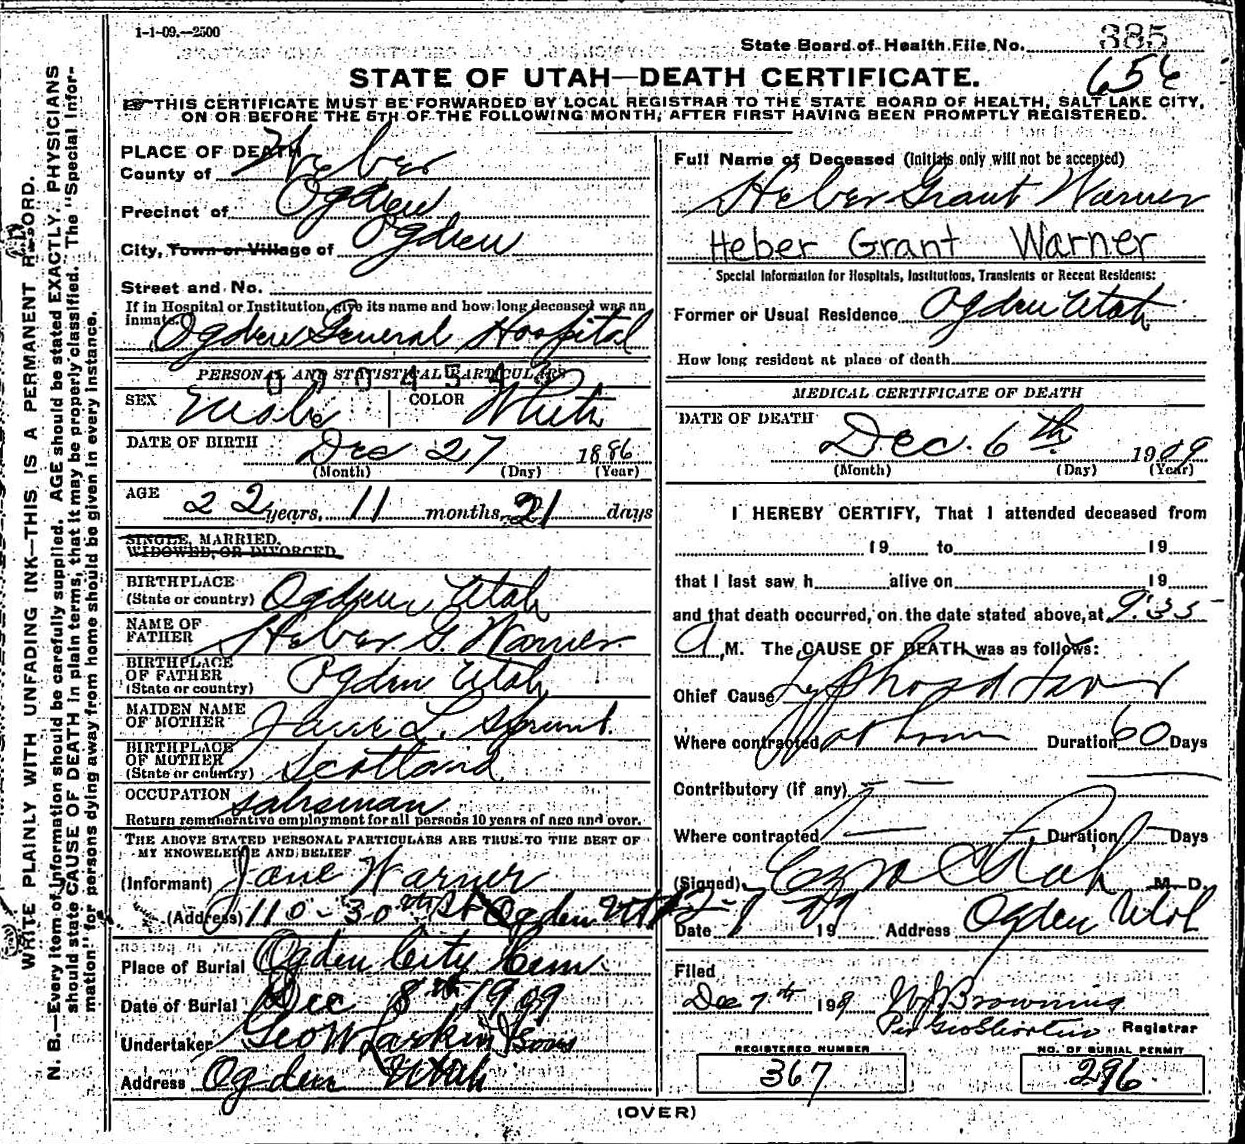 1-1-09.—2500
State Board of Health File No. 385
656
STATE OF UTAH—DEATH CERTIFICATE.
THIS CERTIFICATE MUST BE FORWARDED BY LOCAL REGISTRAR TO THE STATE BOARD OF HEALTH, SALT LAKE CITY,
ON OR BEFORE THE 5TH OF THE FOLLOWING MONTH, AFTER FIRST HAVING BEEN PROMPTLY REGISTERED.
WRITE PLAINLY WITH UNFADING INK—THIS IS A PERMANENT RECORD.
N. B.—Every item of information should be carefully supplied. AGE should be stated EXACTLY. PHYSICIANS
should state CAUSE OF DEATH in plain terms, that it may be properly classified. The "Special Infor-
mation" for persons dying away from home should be given in every instance.
PLACE OF DEATH
County of Weber
Precinct of Ogden
City, Town or Village of Ogden
Street and No.
If in Hospital or Institution, give its name and how long deceased was an
inmate.
Ogden General Hospital
PERSONAL AND STATISTICAL PARTICULARS
SEX Male COLOR White
DATE OF BIRTH Dec 27 1886
(Month) (Day) (Year)
AGE
22 years, 11 months, 21 days
SINGLE, MARRIED,
WIDOWED, OR DIVORCED
BIRTHPLACE
(State or country) Ogden Utah
NAME OF
FATHER Heber G. Warner.
BIRTHPLACE
OF FATHER
(State or country) Ogden Utah
MAIDEN NAME
OF MOTHER Jane L.
BIRTHPLACE
OF MOTHER
(State or country) Scotland
OCCUPATION Salesman
Return remunerative employment for all persons 10 years of age and over.
THE ABOVE STATED PERSONAL PARTICULARS ARE TRUE TO THE BEST OF
MY KNOWLEDGE AND BELIEF
(Informant) Jane Warner
(Address) 110-30th St Ogden Utah
Place of Burial Ogden City Cem.
Date of Burial Dec 8th 1909
Undertaker Geo W Larkin & Sons
Address Ogden Utah
Full Name of Deceased (Initials only will not be accepted)
Heber Grant Warner
Heber Grant Warner
Special Information for Hospitals, Institutions, Transients or Recent Residents:
Former or Usual Residence Ogden Utah
How long resident at place of death
MEDICAL CERTIFICATE OF DEATH
DATE OF DEATH
Dec. 6th 1909
(Month) (Day) (Year)
I HEREBY CERTIFY, That I attended deceased from
19 to 19
that I last saw h alive on 19
and that death occurred, on the date stated above, at 9:35
A.M. The CAUSE OF DEATH was as follows:
Chief Cause Typhoid Fever
Where contracted at home Duration 60 Days
Contributory (if any) — —
Where contracted — Duration — Days
(Signed) Ezra C Rich M. D.
Date 12-7 1909 Address Ogden Utah
Filed
Dec 7th 1909 W J Browning
Registrar
REGISTERED NUMBER
367
NO. OF BURIAL PERMIT
296
(OVER)